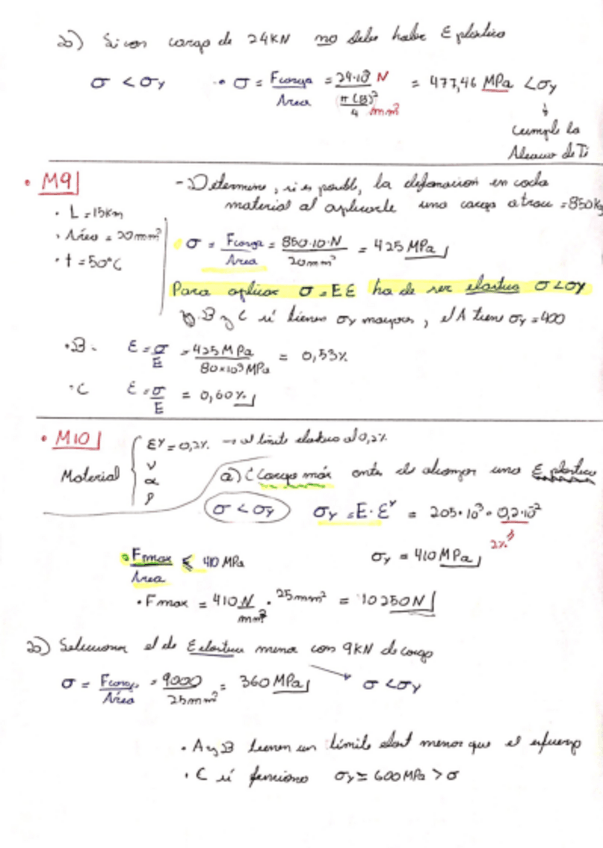 b) Si con carga de 24KN no debe haber E plástica
σ < σy · σ = Fcarga/Área = 24·10³ N / (π(8)²/4 mm²) = 477,46 MPa < σy
↓
Cumple la
Aleación de Ti
• M9
- Determine, si es posible, la deformación en cada
material al aplicarle una carga a = 850Kg
· L = 15Km
· Área = 20mm²
· t = 50°C
σ = Fcarga/Área = 850·10·N / 20mm² = 425 MPa
Para aplicar σ = Eε ha de ser elástica σ<σy
B y C sí tienen σy mayores, el A tiene σy = 400
·B- ε = σ/E = 425 MPa / 80×10³ MPa = 0,53%
·C ε = σ/E = 0,60%
• M10
Material { εY = 0,2%. → al límite elástico al 0,2%
ν
α
ρ
a) ¿Carga máx antes de alcanzar una E plástica
σ < σy σy = E·εY = 205·10³·0,2·10²
2%
Fmax/Área ≤ 410 MPa
σy = 410 MPa
· Fmax = 410 N/mm² · 25mm² = 10250N
b) Seleccionar el de E elástica menor con 9KN de carga
σ = Fcarga/Área = 9000/25mm² = 360 MPa → σ < σy
· A y B tienen un límite elast menor que el esfuerzo
· C sí funciona σy = 600MPa > σ